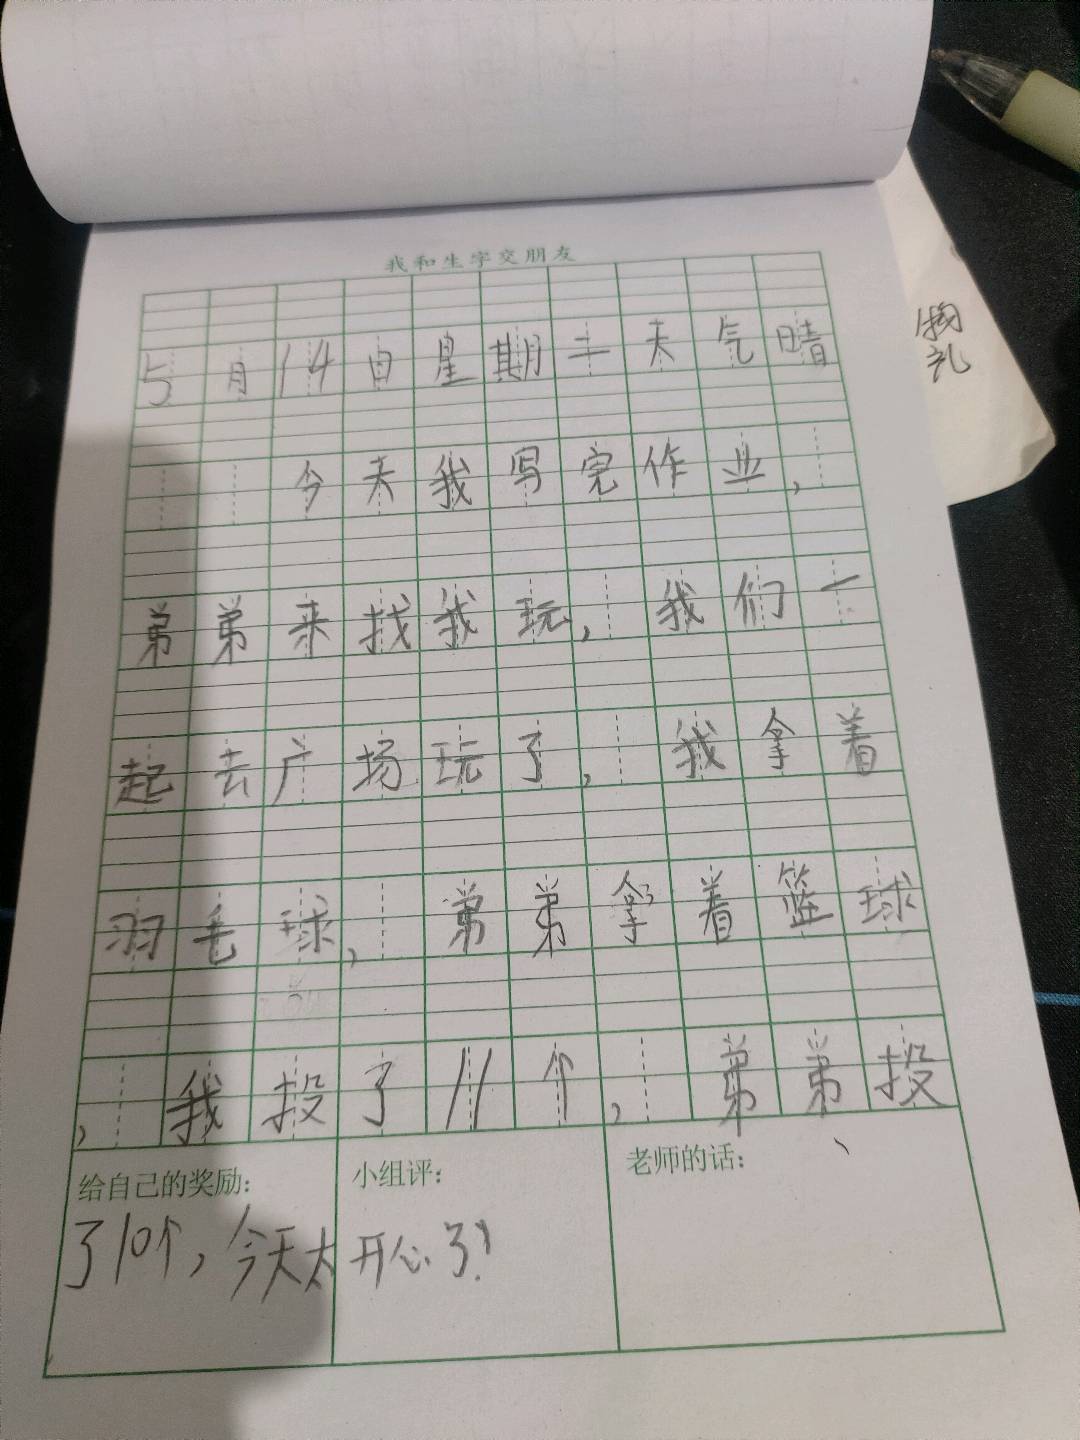 我和生字交朋友
5月14日星期二天气晴
今天我写完作业,
弟弟来找我玩,我们一
起去广场玩了,我拿着
羽毛球,弟弟拿着篮球
,我投了11个,弟弟投
给自己的奖励: 小组评: 老师的话:
了10个,今天太开心了!